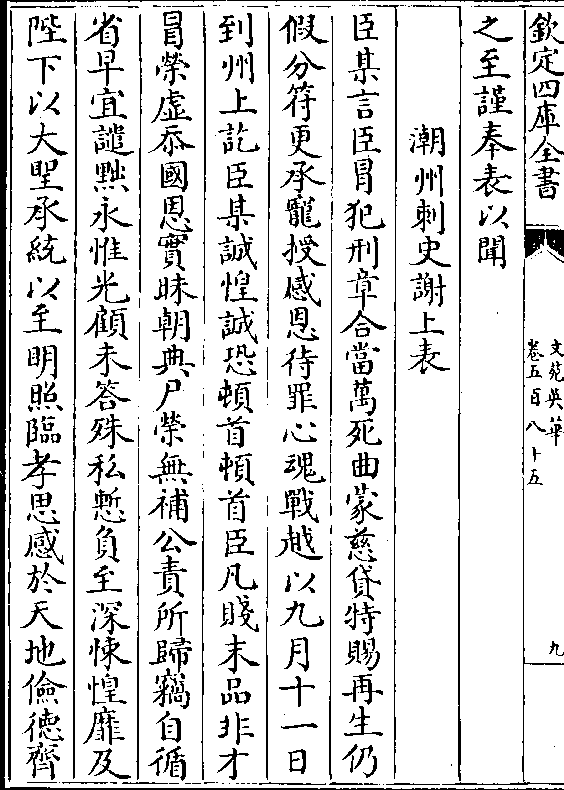 欽定四庫全書
文苑英華
卷五百八十五
九
之至謹奉表以聞
潮州刺史謝上表
臣某言臣冒犯刑章合當萬死曲蒙慈貸特賜再生仍
假分符更承寵授感恩待罪心魂戰越以九月十一日
到州上訖臣某誠惶誠恐頓首頓首臣凡賤末品非才
冒榮虛忝國恩實昧朝典尸榮無補公責所歸竊自循
省早宜譴黜永惟光顧未答殊私慙負至深悚惶靡及
陛下以大聖承統以至明照臨孝思感於天地儉德齊